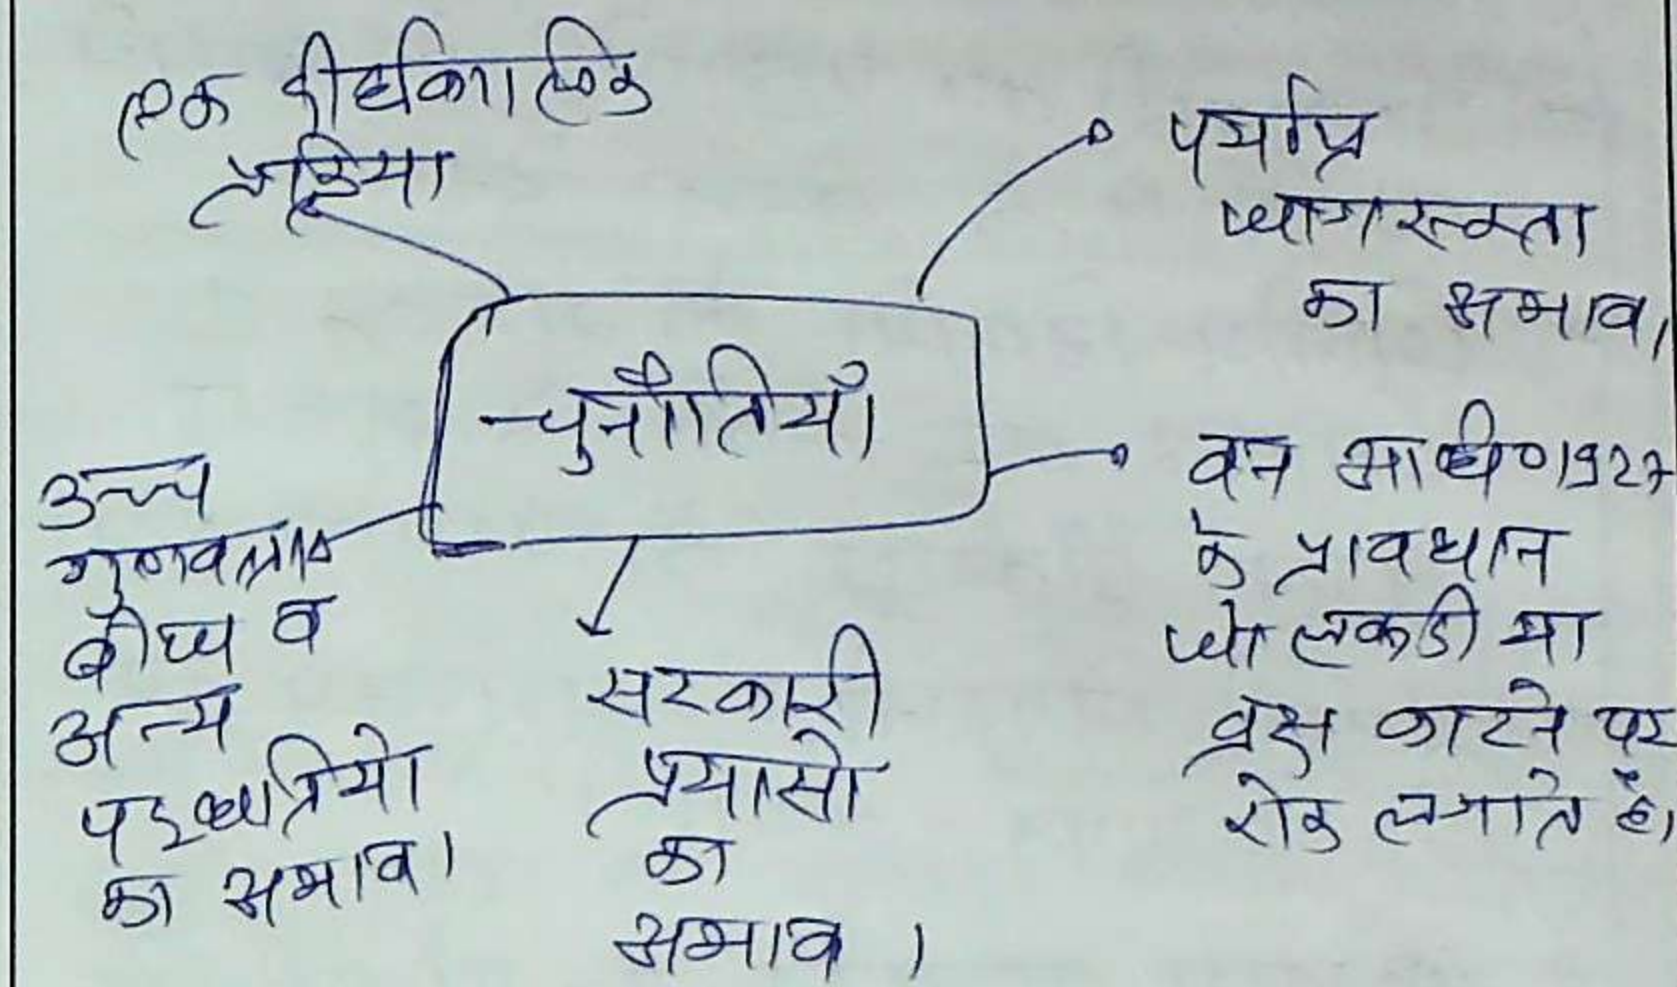 एक दीर्घकालिक
प्रक्रिया
पर्याप्त
जागरूकता
का अभाव।
चुनौतियाँ
वन अधि० 1927
के प्रावधान
जो लकडी या
व्रक्ष काटने पर
रोक लगाते है।
उच्च
गुणवत्ता
बीज व
अन्य
पद्धत्तियो
का अभाव।
सरकारी
प्रयासो
का
अभाव।